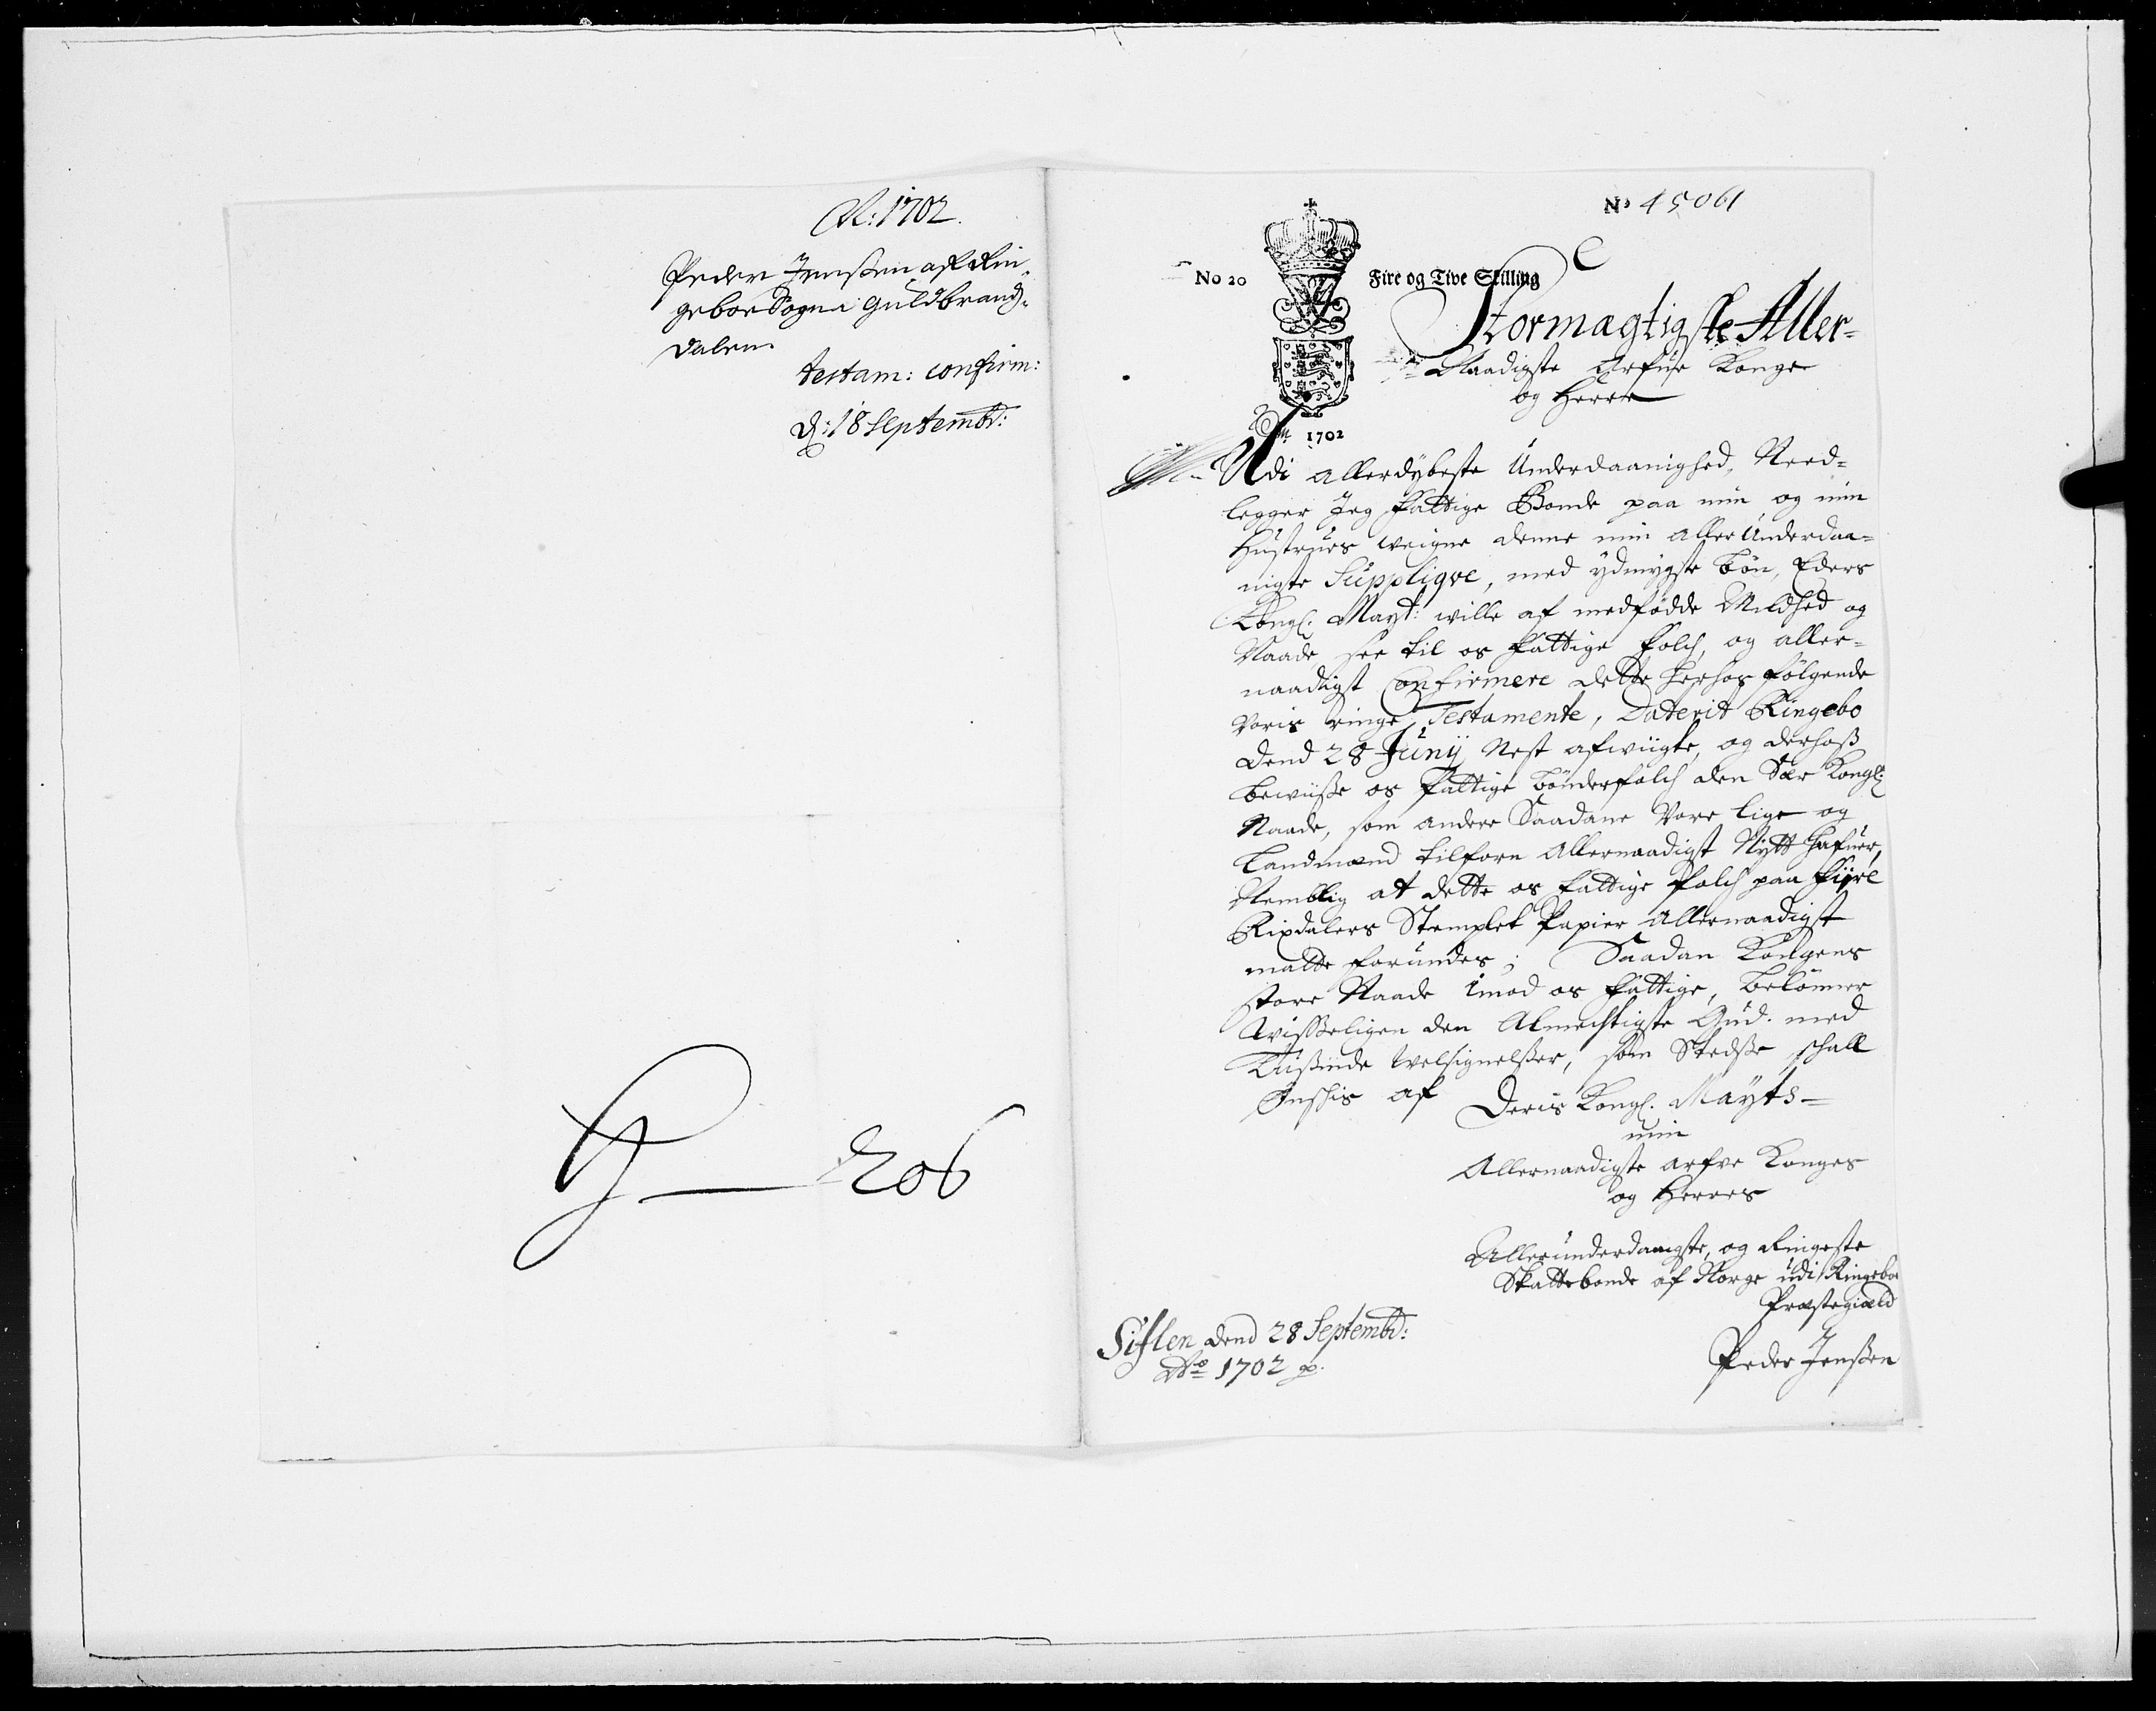 N: 1702.
Peder Jenssen af Rin-
geboe Sogn i Guldbrands-
dalen.
testam: confirm:
d: 18 Septembr:
206
No 45061
No 20
Fire og Tive Skilling
Stormægtigste Aller-
Naadigste Arfve Konge
og Herre
1702
Udi allerdybeste Underdaanighed, Need-
legger Jeg fattige Bonde paa min og min
Hustrues weigne denne min allerUnderdaa-
nigste Suppliqve, med ydmygste bön, Eders
Kongl. Mayt: wille af medfödde Mildhed og
Naade see til os fattige folch, og aller-
naadigst Confirmere dette herhos fölgende
voris ringe Testamente, Daterit Ringebo
dend 28 Junij Nest afwiigte, og derhoß
bewiisse os fattige bönderfolch den Stor Kongl:
Naade, som andre Saadane vore lige og
Landmænd tilforn Allernaadigst Nytt hafuer,
Nemblig at dette os fattige folch paa fiyre
Rixdalers Stemplet Papier Allernaadigst
matte forundes; Saadan Kongens
store Naade imod os fattige, belönner
wisseligen den Almechtigste Gud med
tusinde welsignelsser, som Stedsse schall
Ønschis af
Deris Kongl. Mayts-
min
Allernaadigste arfve Konges
og Herres
Allerunderdanigste, og Ringeste
Skattebonde af Norge udi Ringeboe
Prestegiæld
Peder Jenssen
dend 28 Septembr:
Ao 1702